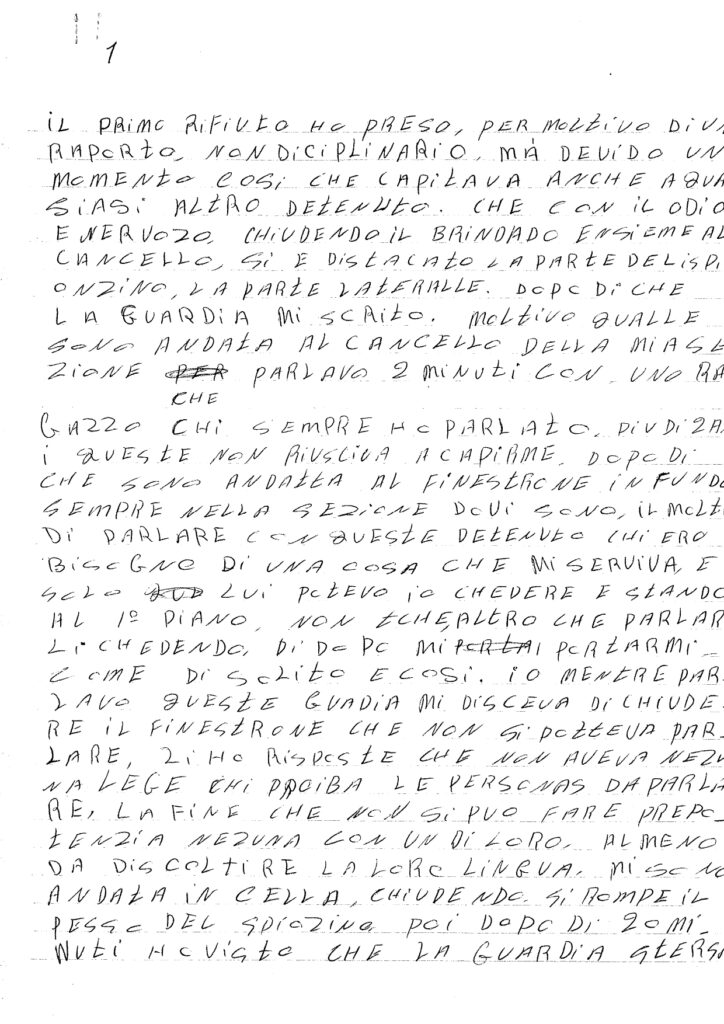 1
IL PRIMO RIFIUTO HO PRESO, PER MOLTIVO DI UN
RAPORTO, NON DICIPLINARIO, MA DEVIDO UN
MOMENTO COSI CHE CAPITAVA ANCHE A QUA
SIASI ALTRO DETENUTO. CHE CON IL ODIO
E NERVOZO, CHIUDENDO IL BRINDADO ENSIEME AL
CANCELLO, SI E DISTACATO LA PARTE DEL ISPI
ONZINO, LA PARTE LATERALLE. DOPO DI CHE
LA GUARDIA MI SCRITO. MOLTIVO QUALLE
SONO ANDATA AL CANCELLO DELLA MIA SE
ZIONE PARLAVO 2 MINUTI CON UNO RA
CHE
GAZZO CHI SEMPRE HO PARLATO, DIUDIZA
I QUESTE NON RIUSCIVA A CAPIRME. DOPO DI
CHE SONO ANDATTA AL FINESTRONE IN FUNDO
SEMPRE NELLA SEZIONE DOVI SONO, IL MOLTI
DI PARLARE CON QUESTE DETENUTO CHI ERO
BISOGNO DI UNA COSA CHE MI SERVIVA, E
SOLO LUI POTEVO IO CHEDERE E STANDO
AL 1º PIANO, NON ALTRO CHE PARLAR
LI CHEDENDO, DI DOPO MI PORTARMI
COME DI SOLITO E COSI. IO MENTRE PAR
LAVO QUESTE GUADIA MI DISCEVA DI CHIUDE
RE IL FINESTRONE CHE NON SI POTTEVA PAR
LARE, LI HO RISPOSTE CHE NON AVEVA NEZU
NA LEGE CHI PROIBA LE PERSONAS DA PARLA
RE, LA FINE CHE NON SI PUO FARE PREPO
TENZIA NEZUNA CON UN DI LORO, AL MENO
DA DISCOLTIRE LA LORO LINGUA. MI SONO
ANDATA IN CELLA, CHIUDENDO. SI ROMPE IL
PESSO DEL SPIOZINO POI DOPO DI 20 MI
NUTI HO VISTO CHE LA GUARDIA STERSO